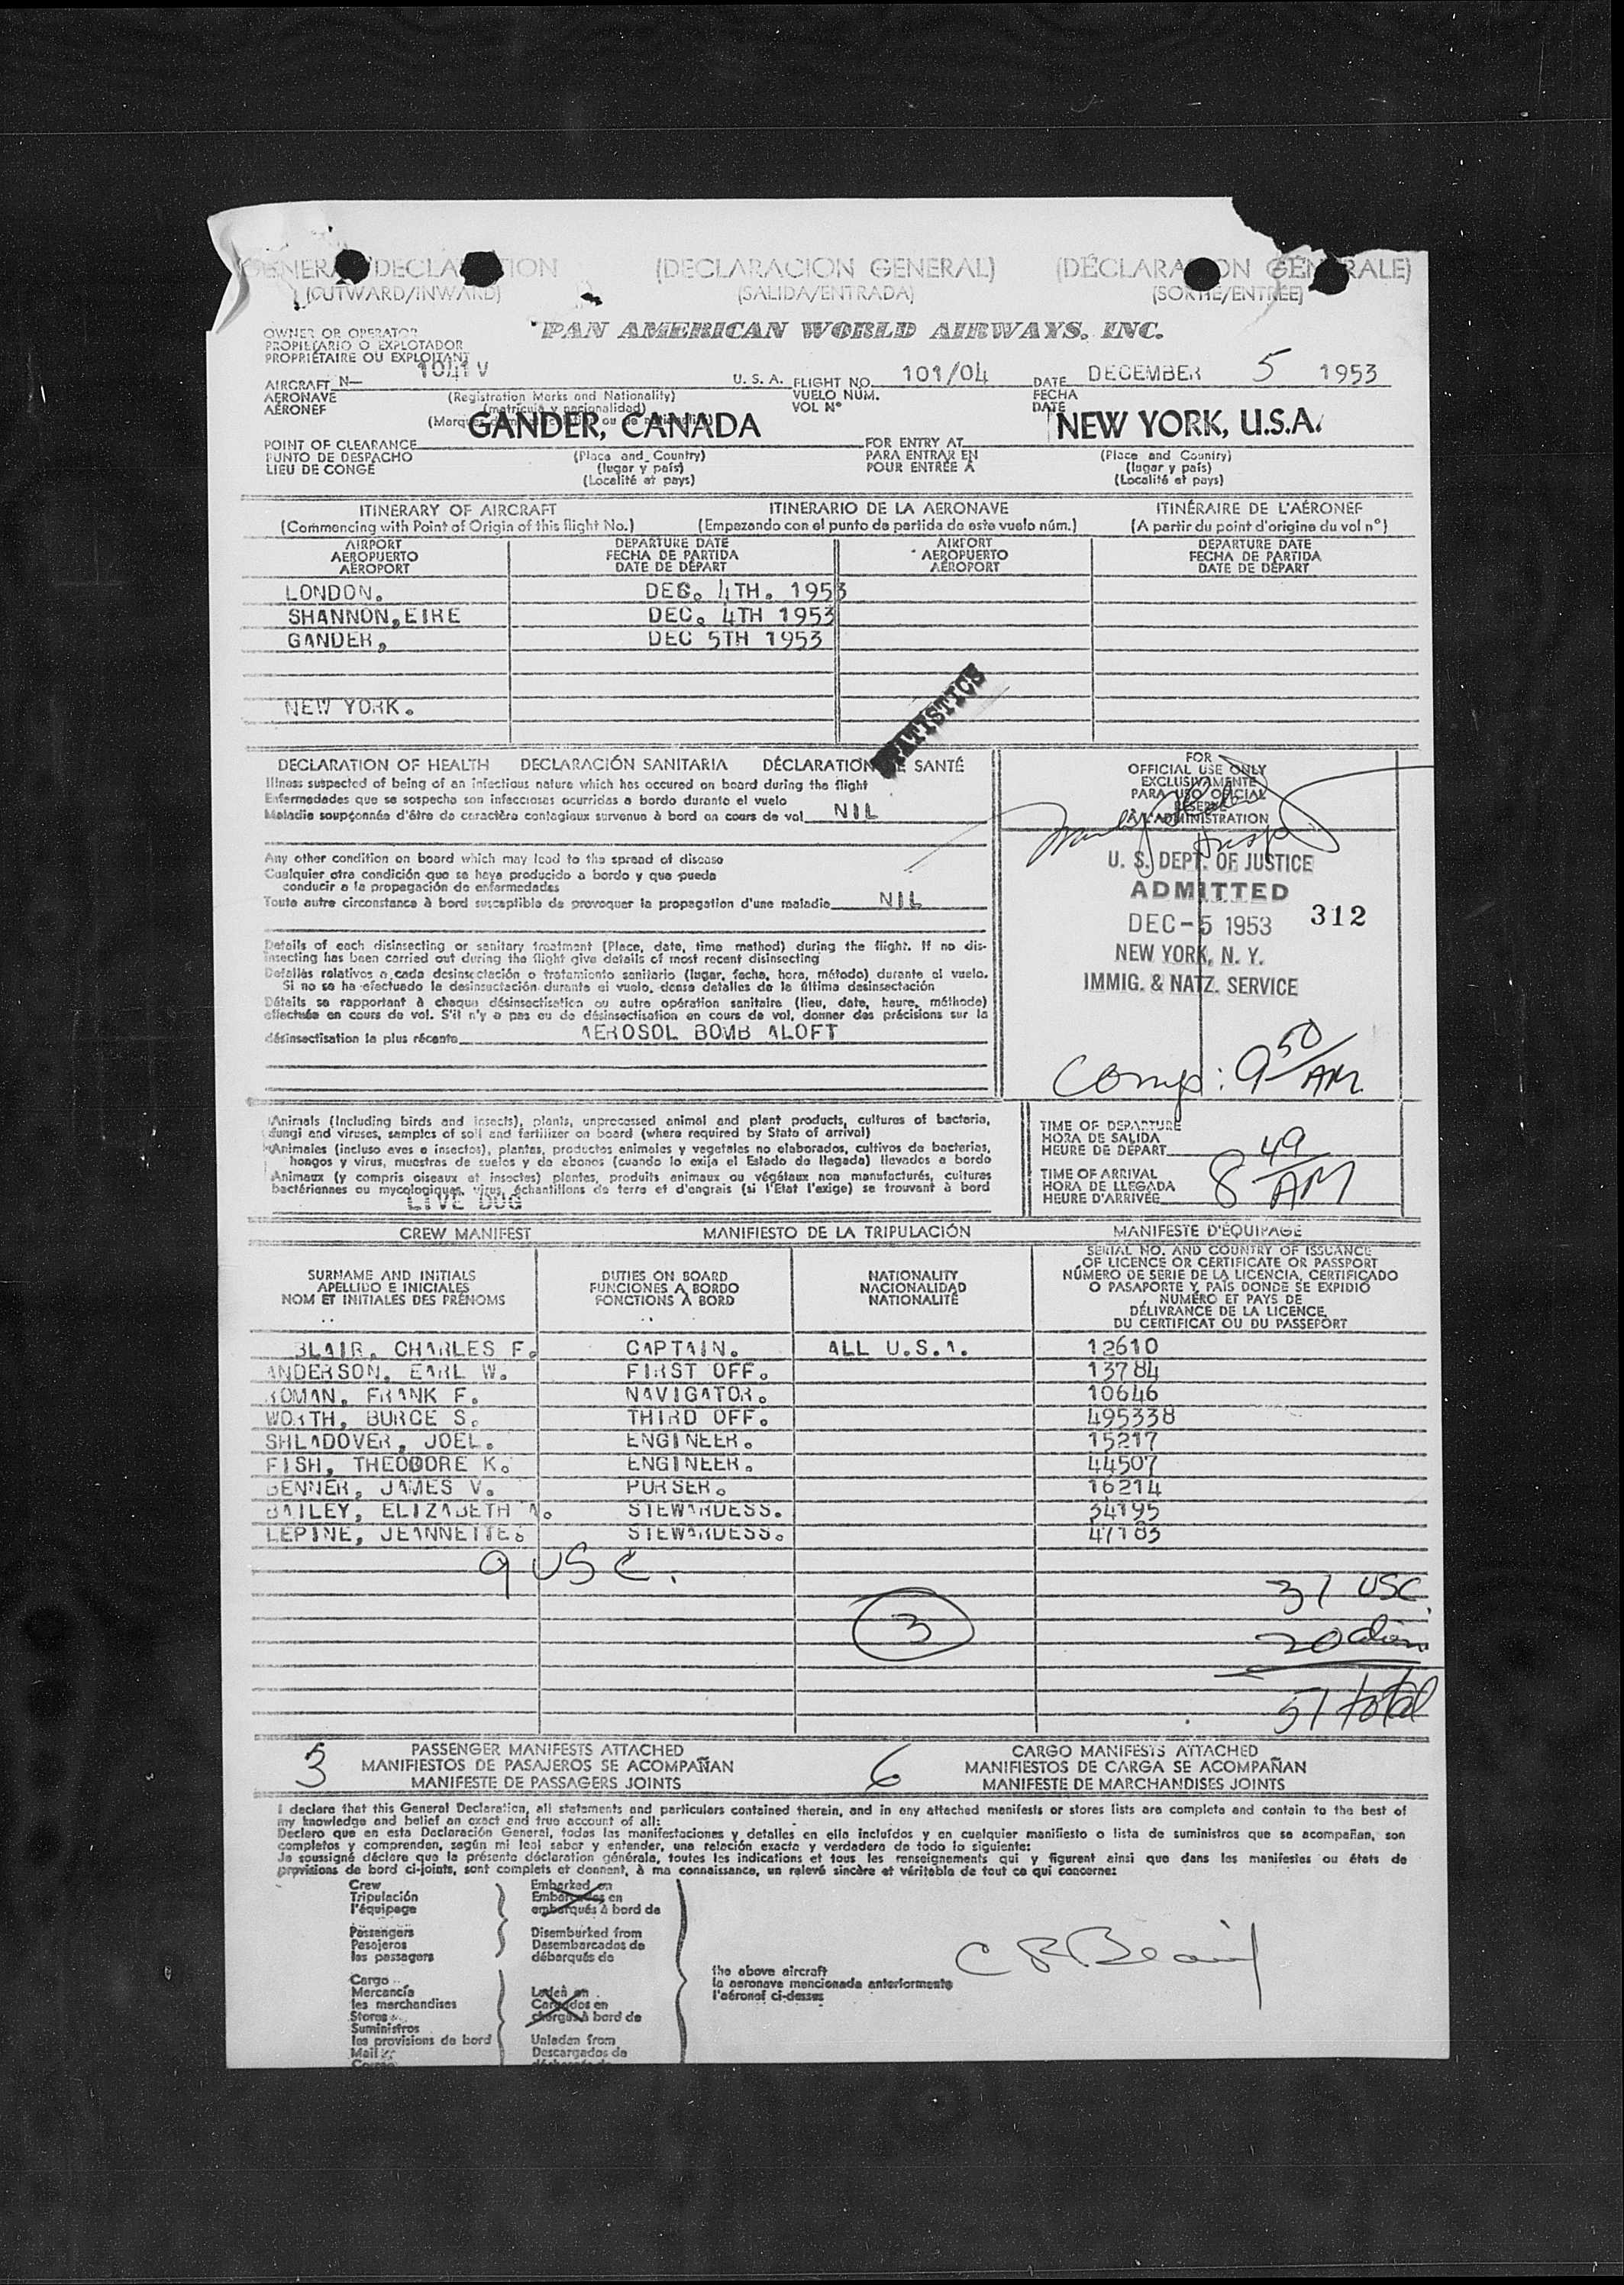 GENERAL DECLARATION (DECLARACION GENERAL) (DÉCLARATION GÉNÉRALE)
(OUTWARD/INWARD) (SALIDA/ENTRADA) (SORTIE/ENTRÉE)
OWNER OR OPERATOR PAN AMERICAN WORLD AIRWAYS, INC.
PROPIETARIO O EXPLOTADOR
PROPRIÉTAIRE OU EXPLOITANT
AIRCRAFT N— 1041V U.S.A. FLIGHT NO. 101/04 DATE DECEMBER 5 1953
AERONAVE (Registration Marks and Nationality) VUELO NÚM. FECHA
AÉRONEF (matrícula y nacionalidad) VOL Nº DATE
GANDER, CANADA NEW YORK, U.S.A.
POINT OF CLEARANCE FOR ENTRY AT
PUNTO DE DESPACHO (Place and Country) PARA ENTRAR EN (Place and Country)
LIEU DE CONGÉ (lugar y país) POUR ENTRÉE À (lugar y país)
(Localité et pays) (Localité et pays)
ITINERARY OF AIRCRAFT ITINERARIO DE LA AERONAVE ITINÉRAIRE DE L'AÉRONEF
(Commencing with Point of Origin of this flight No.) (Empezando con el punto de partida de este vuelo núm.) (A partir du point d'origine du vol nº)
AIRPORT DEPARTURE DATE AIRPORT DEPARTURE DATE
AEROPUERTO FECHA DE PARTIDA AEROPUERTO FECHA DE PARTIDA
AÉROPORT DATE DE DÉPART AÉROPORT DATE DE DÉPART
LONDON. DEC. 4TH. 1953
SHANNON,EIRE DEC. 4TH 1953
GANDER, DEC 5TH 1953
NEW YORK.
STATISTICS
DECLARATION OF HEALTH DECLARACIÓN SANITARIA DÉCLARATION DE SANTÉ
Illness suspected of being of an infectious nature which has occured on board during the flight
Enfermedades que se sospecha son infecciosas ocurridas a bordo durante el vuelo
Maladie soupçonnée d'être de caractère contagieux survenue à bord en cours de vol NIL
Any other condition on board which may lead to the spread of disease
Cualquier otra condición que se haya producido a bordo y que pueda
conducir a la propagación de enfermedades
Toute autre circonstance à bord susceptible de provoquer la propagation d'une maladie NIL
Details of each disinsecting or sanitary treatment (Place, date, time method) during the flight. If no dis-
insecting has been carried out during the flight give details of most recent disinsecting
Detalles relativos a cada desinsectación o tratamiento sanitario (lugar, fecha, hora, método) durante el vuelo.
Si no se ha efectuado la desinsectación durante el vuelo, dense detalles de la última desinsectación
Détails se rapportant à chaque désinsectisation ou autre opération sanitaire (lieu, date, heure, méthode)
effectuée en cours de vol. S'il n'y a pas eu de désinsectisation en cours de vol, donner des précisions sur la
désinsectisation la plus récente AEROSOL BOMB ALOFT
FOR
OFFICIAL USE ONLY
EXCLUSIVAMENTE
PARA USO OFICIAL
RESERVÉ
À L'ADMINISTRATION
Insp
U. S. DEPT. OF JUSTICE
ADMITTED
DEC-5 1953 312
NEW YORK, N. Y.
IMMIG. & NATZ. SERVICE
Comp: 9 50 AM
Animals (Including birds and insects), plants, unprocessed animal and plant products, cultures of bacteria,
fungi and viruses, samples of soil and fertilizer on board (where required by State of arrival)
Animales (incluso aves e insectos), plantas, productos animales y vegetales no elaborados, cultivos de bacterias,
hongos y virus, muestras de suelos y de abonos (cuando lo exija el Estado de llegada) llevados a bordo
Animaux (y compris oiseaux et insectes) plantes, produits animaux ou végétaux non manufacturés, cultures
bactériennes ou mycologiques, virus, échantillons de terre et d'engrais (si l'Etat l'exige) se trouvant à bord
LIVE DOG
TIME OF DEPARTURE
HORA DE SALIDA
HEURE DE DÉPART
TIME OF ARRIVAL
HORA DE LLEGADA 8 49 AM
HEURE D'ARRIVÉE
CREW MANIFEST MANIFIESTO DE LA TRIPULACIÓN MANIFESTE D'ÉQUIPAGE
SURNAME AND INITIALS DUTIES ON BOARD NATIONALITY SERIAL NO. AND COUNTRY OF ISSUANCE
APELLIDO E INICIALES FUNCIONES A BORDO NACIONALIDAD OF LICENCE OR CERTIFICATE OR PASSPORT
NOM ET INITIALES DES PRÉNOMS FONCTIONS À BORD NATIONALITÉ NÚMERO DE SERIE DE LA LICENCIA, CERTIFICADO
O PASAPORTE Y PAÍS DONDE SE EXPIDIÓ
NUMÉRO ET PAYS DE
DÉLIVRANCE DE LA LICENCE,
DU CERTIFICAT OU DU PASSEPORT
BLAIR, CHARLES F. CAPTAIN. ALL U.S.A. 12610
ANDERSON, EARL W. FIRST OFF. 13784
ROMAN, FRANK F. NAVIGATOR. 10646
WORTH, BURCE S. THIRD OFF. 495338
SHLADOVER, JOEL. ENGINEER. 15217
FISH, THEODORE K. ENGINEER. 44507
BENNER, JAMES V. PURSER. 16214
BAILEY, ELIZABETH A. STEWARDESS. 34195
LEPINE, JEANNETTE. STEWARDESS. 47183
9 USC.
31 USC.
3
20 alien
51 total
3 PASSENGER MANIFESTS ATTACHED 6 CARGO MANIFESTS ATTACHED
MANIFIESTOS DE PASAJEROS SE ACOMPAÑAN MANIFIESTOS DE CARGA SE ACOMPAÑAN
MANIFESTE DE PASSAGERS JOINTS MANIFESTE DE MARCHANDISES JOINTS
I declare that this General Declaration, all statements and particulars contained therein, and in any attached manifests or stores lists are complete and contain to the best of
my knowledge and belief an exact and true account of all:
Declaro que en esta Declaración General, todas las manifestaciones y detalles en ella incluídos y en cualquier manifiesto o lista de suministros que se acompañan, son
completos y comprenden, según mi leal saber y entender, una relación exacta y verdadera de todo lo siguiente:
Je soussigné déclare que la présente déclaration générale, toutes les indications et tous les renseignements qui y figurent ainsi que dans les manifestes ou états de
provisions de bord ci-joints, sont complets et donnent, à ma connaissance, un relevé sincère et véritable de tout ce qui concerne:
Crew Embarked on
Tripulación Embarcados en
l'équipage embarqués à bord de
Passengers Disembarked from
Pasajeros Desembarcados de
les passagers débarqués de
the above aircraft
la aeronave mencionada anteriormente
l'aéronef ci-dessus
Cargo
Mercancía Laden on
les merchandises Cargados en
Stores chargés à bord de
Suministros
les provisions de bord Unladen from
Mail Descargados de